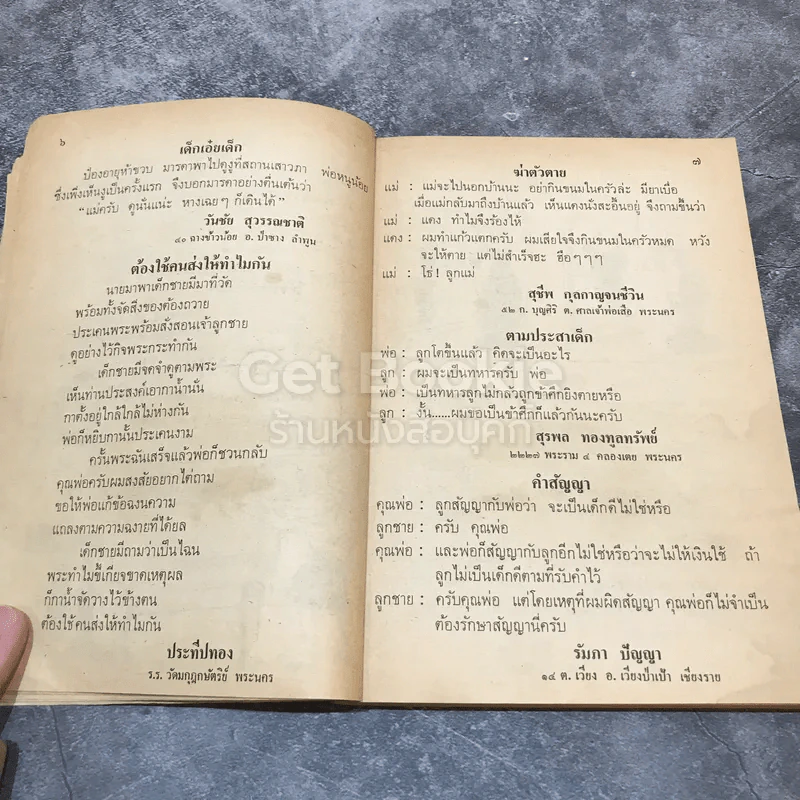 ๖
เด็กเอ๋ยเด็ก
ป๋องอายุห้าขวบ มารดาพาไปดูงูที่สถานเสาวภา พ่อหนูน้อย
ซึ่งเพิ่งเห็นงูเป็นครั้งแรก จึงบอกมารดาอย่างตื่นเต้นว่า
“แม่ครับ ดูนั่นแน่ะ หางเฉยๆ ก็เดินได้”
วันชัย สุวรรณชาติ
๔๐ ฉางข้าวน้อย อ. ป่าซาง ลำพูน
ต้องใช้คนส่งให้ทำไมกัน
นายมาพาเด็กชายมีมาที่วัด
พร้อมทั้งจัดสิ่งของต้องถวาย
ประเคนพระพร้อมสั่งสอนเจ้าลูกชาย
ดูอย่างไว้กิจพระกระทำกัน
เด็กชายมีจดจำดูตามพระ
เห็นท่านประสงค์เอากาน้ำนั่น
กาตั้งอยู่ใกล้ใกล้ไม่ห่างกัน
พ่อก็หยิบกานั้นประเคนงาม
ครั้นพระฉันเสร็จแล้วพ่อก็ชวนกลับ
คุณพ่อครับผมสงสัยอยากไต่ถาม
ขอให้พ่อแก้ข้อฉงนความ
แถลงตามความฉงายที่ได้ยล
เด็กชายมีถามว่าเป็นไฉน
พระทำไมขี้เกียจขาดเหตุผล
ก็กาน้ำจัดวางไว้ข้างตน
ต้องใช้คนส่งให้ทำไมกัน
ประทีปทอง
ร.ร. วัดมกุฎกษัตริย์ พระนคร
๗
ฆ่าตัวตาย
แม่ : แม่จะไปนอกบ้านนะ อย่ากินขนมในครัวล่ะ มียาเบื่อ
เมื่อแม่กลับมาถึงบ้านแล้ว เห็นแดงนั่งสะอื้นอยู่ จึงถามขึ้นว่า
แม่ : แดง ทำไมจึงร้องไห้
แดง : ผมทำแก้วแตกครับ ผมเสียใจจึงกินขนมในครัวหมด หวัง
จะให้ตาย แต่ไม่สำเร็จฮะ ฮือๆๆๆ
แม่ : โธ่! ลูกแม่
สุชีพ กุลกาญจนชีวิน
๕๒ ถ. บุญศิริ ต. ศาลเจ้าพ่อเสือ พระนคร
ตามประสาเด็ก
พ่อ : ลูกโตขึ้นแล้ว คิดจะเป็นอะไร
ลูก : ผมจะเป็นทหารครับ พ่อ
พ่อ : เป็นทหารลูกไม่กลัวถูกข้าศึกยิงตายหรือ
ลูก : งั้น......ผมขอเป็นข้าศึกก็แล้วกันนะครับ
สุรพล ทองทูลทรัพย์
๒๒๒๗ พระราม ๔ คลองเตย พระนคร
คำสัญญา
คุณพ่อ : ลูกสัญญากับพ่อว่า จะเป็นเด็กดีไม่ใช่หรือ
ลูกชาย : ครับ คุณพ่อ
คุณพ่อ : และพ่อก็สัญญากับลูกอีกไม่ใช่หรือว่าจะไม่ให้เงินใช้ ถ้า
ลูกไม่เป็นเด็กดีตามที่รับคำไว้
ลูกชาย : ครับคุณพ่อ แต่โดยเหตุที่ผมผิดสัญญา คุณพ่อก็ไม่จำเป็น
ต้องรักษาสัญญานี่ครับ
รัมภา ปัญญา
๑๔ ต. เวียง อ. เวียงป่าเป้า เชียงราย
Get Bookie
ร้านหนังสือบุคกี้